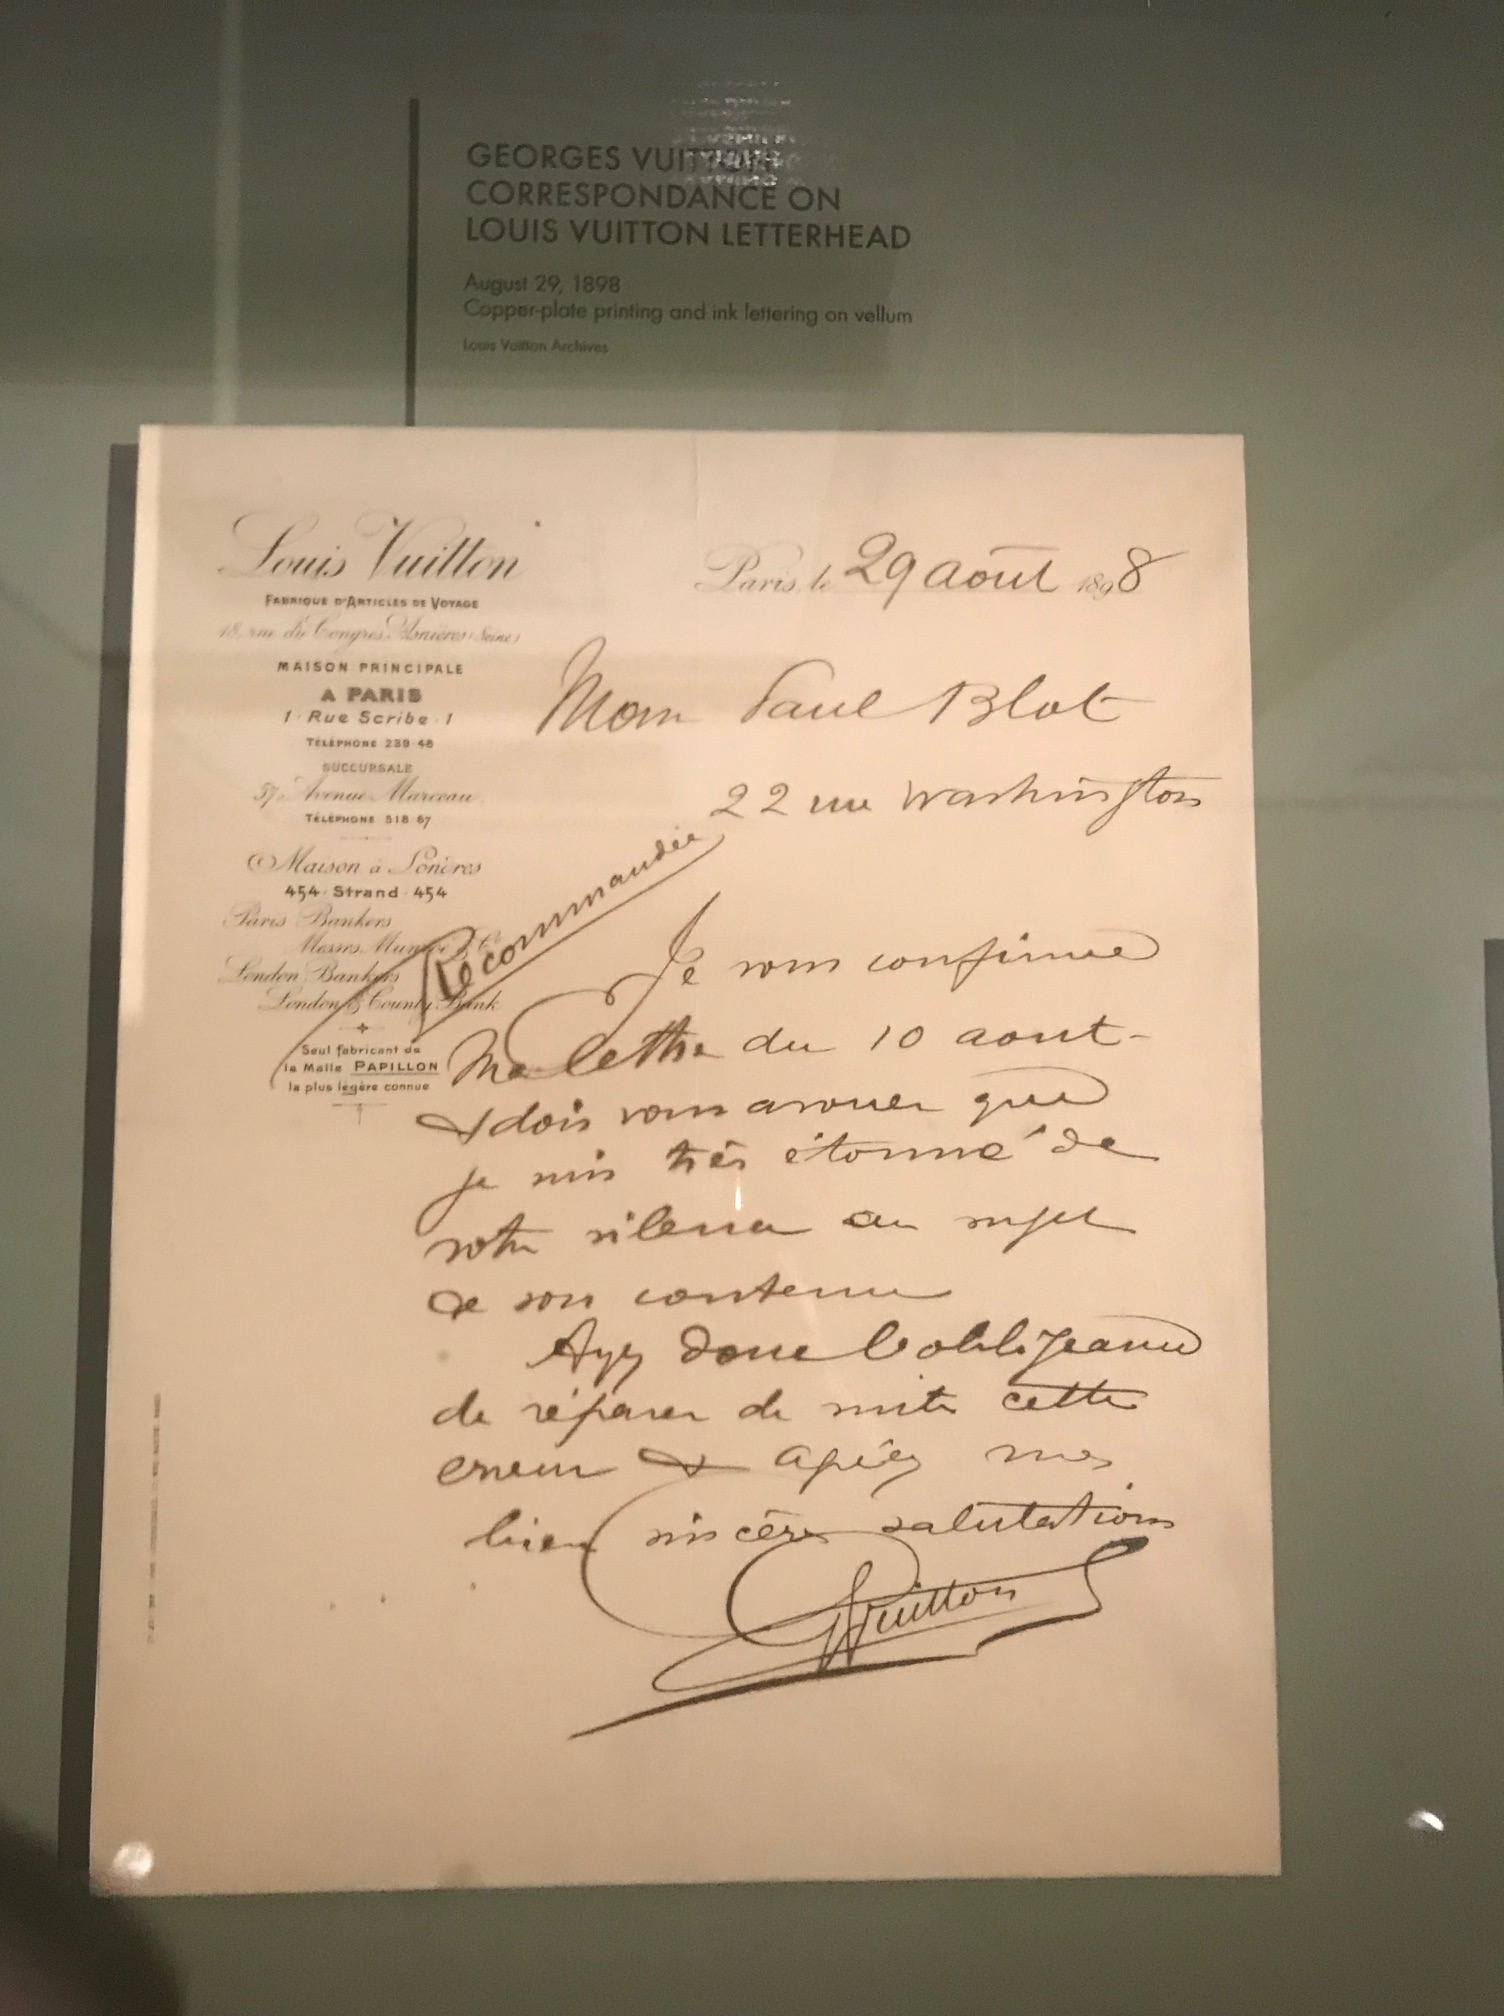 GEORGES VUITTON
CORRESPONDANCE ON
LOUIS VUITTON LETTERHEAD
August 29, 1898
Copper-plate printing and ink lettering on vellum
Louis Vuitton Archives
Louis Vuitton
FABRIQUE D'ARTICLES DE VOYAGE
18, rue du Congrès, Asnières (Seine)
MAISON PRINCIPALE
A PARIS
1 · Rue Scribe · 1
TÉLÉPHONE 239-48
SUCCURSALE
57, Avenue Marceau
TÉLÉPHONE 518-67
Maison à Londres
454 · Strand · 454
Paris Bankers
Messrs. Munroe & Co
London Bankers
London & County Bank
Seul fabricant de
la Malle PAPILLON
la plus légère connue
Paris, le 29 août 1898
Paul Blot
22 rue Washington
Recommandée
Je vous confirme
Ma lettre du 10 aout-
& dois vous avouer que
je suis très étonné de
votre silence au sujet
de son contenu
Ayez donc l'obligeance
de réparer de suite cette
erreur & agréez mes
bien sincères salutations
Vuitton